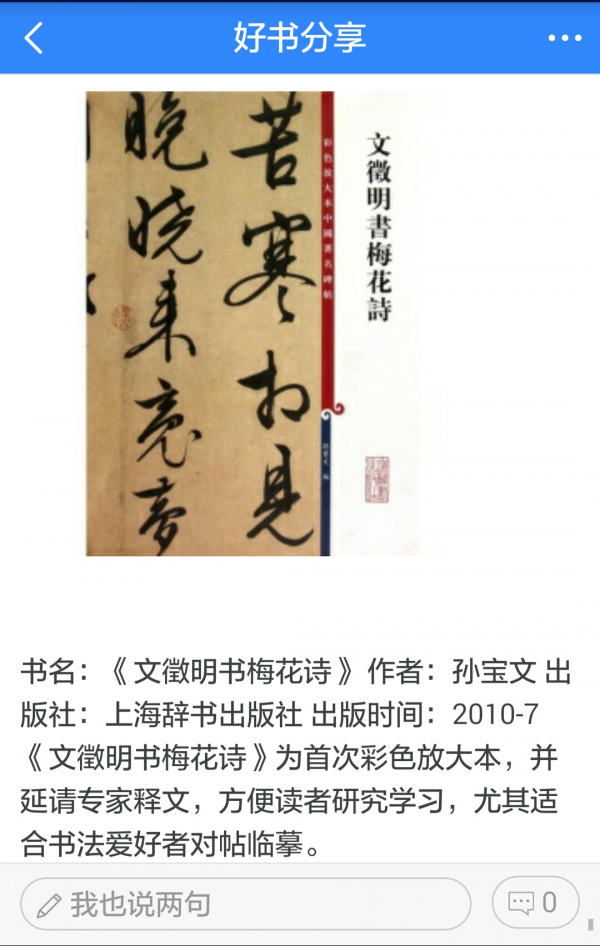 好书分享
苦寒相見
晚晓来亮梦
彩色放大本中國著名碑帖
文徵明書梅花詩
孫寶文 編
书名：《文徵明书梅花诗》作者：孙宝文 出
版社：上海辞书出版社 出版时间：2010-7
《文徵明书梅花诗》为首次彩色放大本，并
延请专家释文，方便读者研究学习，尤其适
合书法爱好者对帖临摹。
我也说两句
0